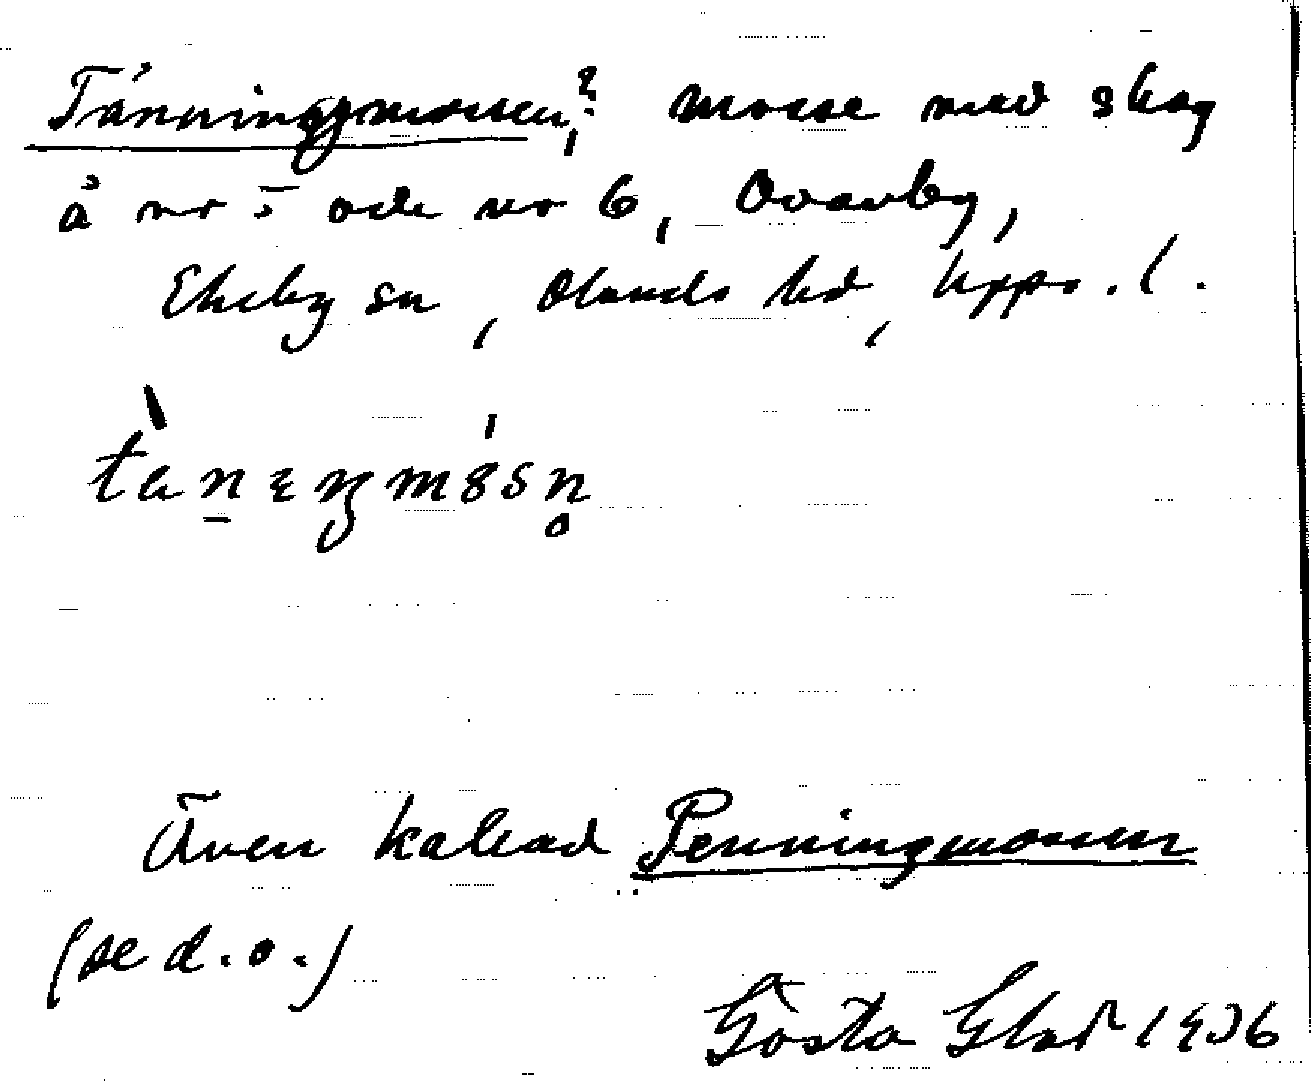 Tånningsmossen,? mosse med skog
å nr 5 och nr 6, Ovanby,
Ekeby sn, Olands hd, Upps. l.
Även kallad Penningmossen
(se d. o.)
Gösta Glad 1936